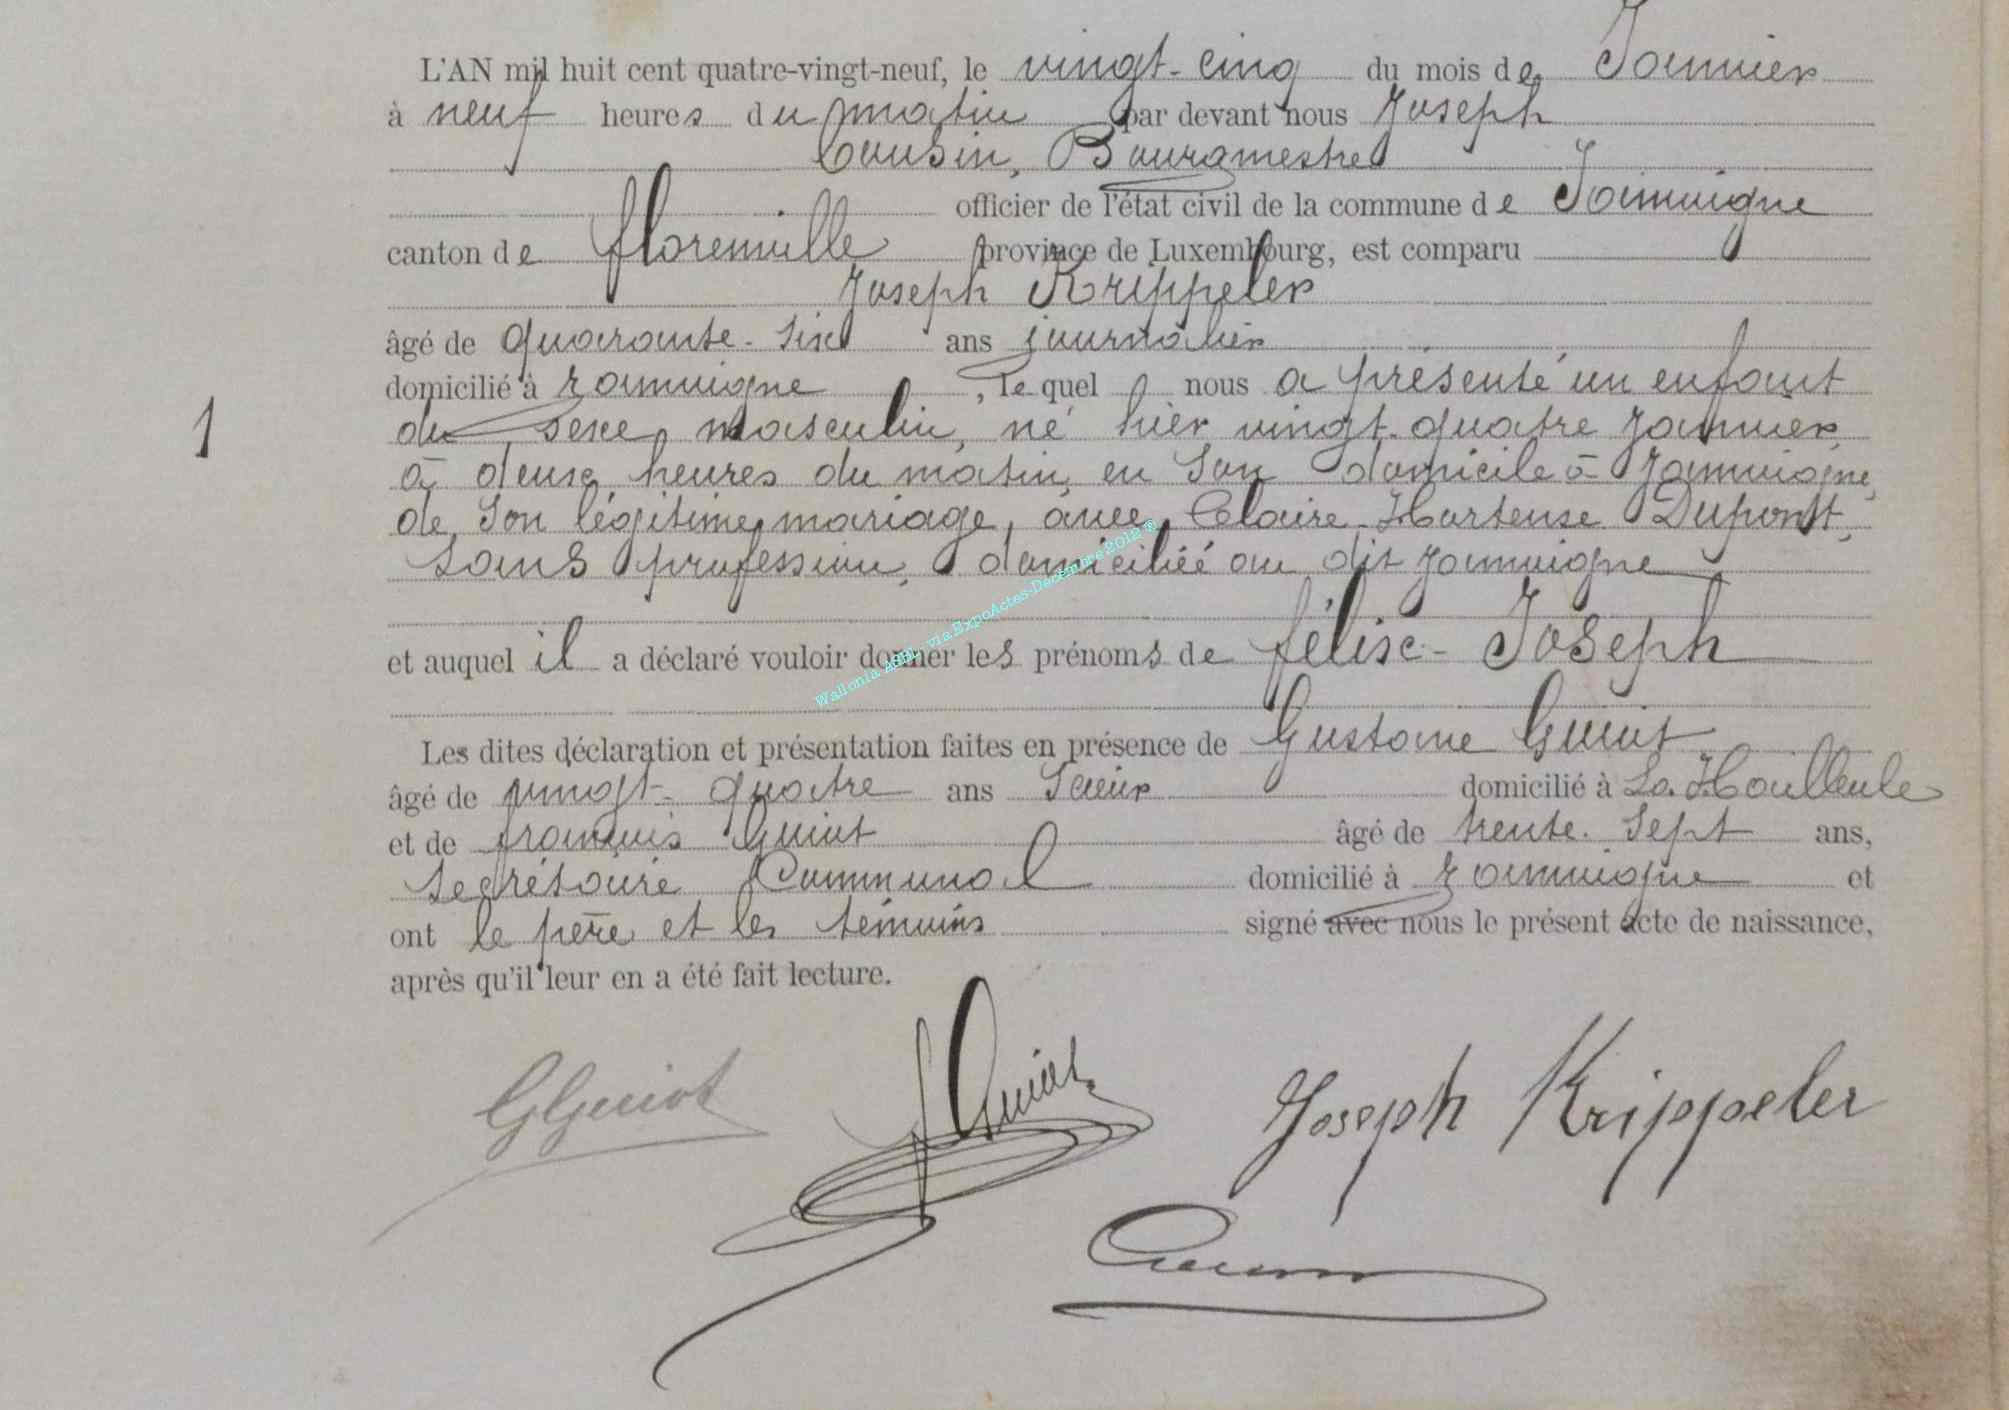 L'AN mil huit cent quatre-vingt-neuf, le vingt-cinq du mois de Janvier
à neuf heures du matin par devant nous Joseph
Cousin, Bourgmestre
officier de l'état civil de la commune de Jamoigne
canton de florenville province de Luxembourg, est comparu
Joseph Krippeler
âgé de quarante-six ans journalier
domicilié à Jamoigne, le quel nous a présenté un enfant
du sexe masculin, né hier vingt-quatre Janvier
à deux heures du matin, en son domicile à Jamoigne,
de son légitime mariage, avec Claire-Hortense Dupont,
sans profession, domiciliée au dit Jamoigne
et auquel il a déclaré vouloir donner les prénoms de félix-Joseph
Wallonia ASBL, via ExpoActes-Décembre 2012 ®
Les dites déclaration et présentation faites en présence de Gustave Guiot
âgé de vingt-quatre ans domicilié à La Houlleule
et de françois Guiot âgé de trente-sept ans,
secrétaire Communal domicilié à Jamoigne et
ont le père et les témoins signé avec nous le présent acte de naissance,
après qu'il leur en a été fait lecture.
1
GGuiot
f Guiot
Joseph Krippeler
Cousin